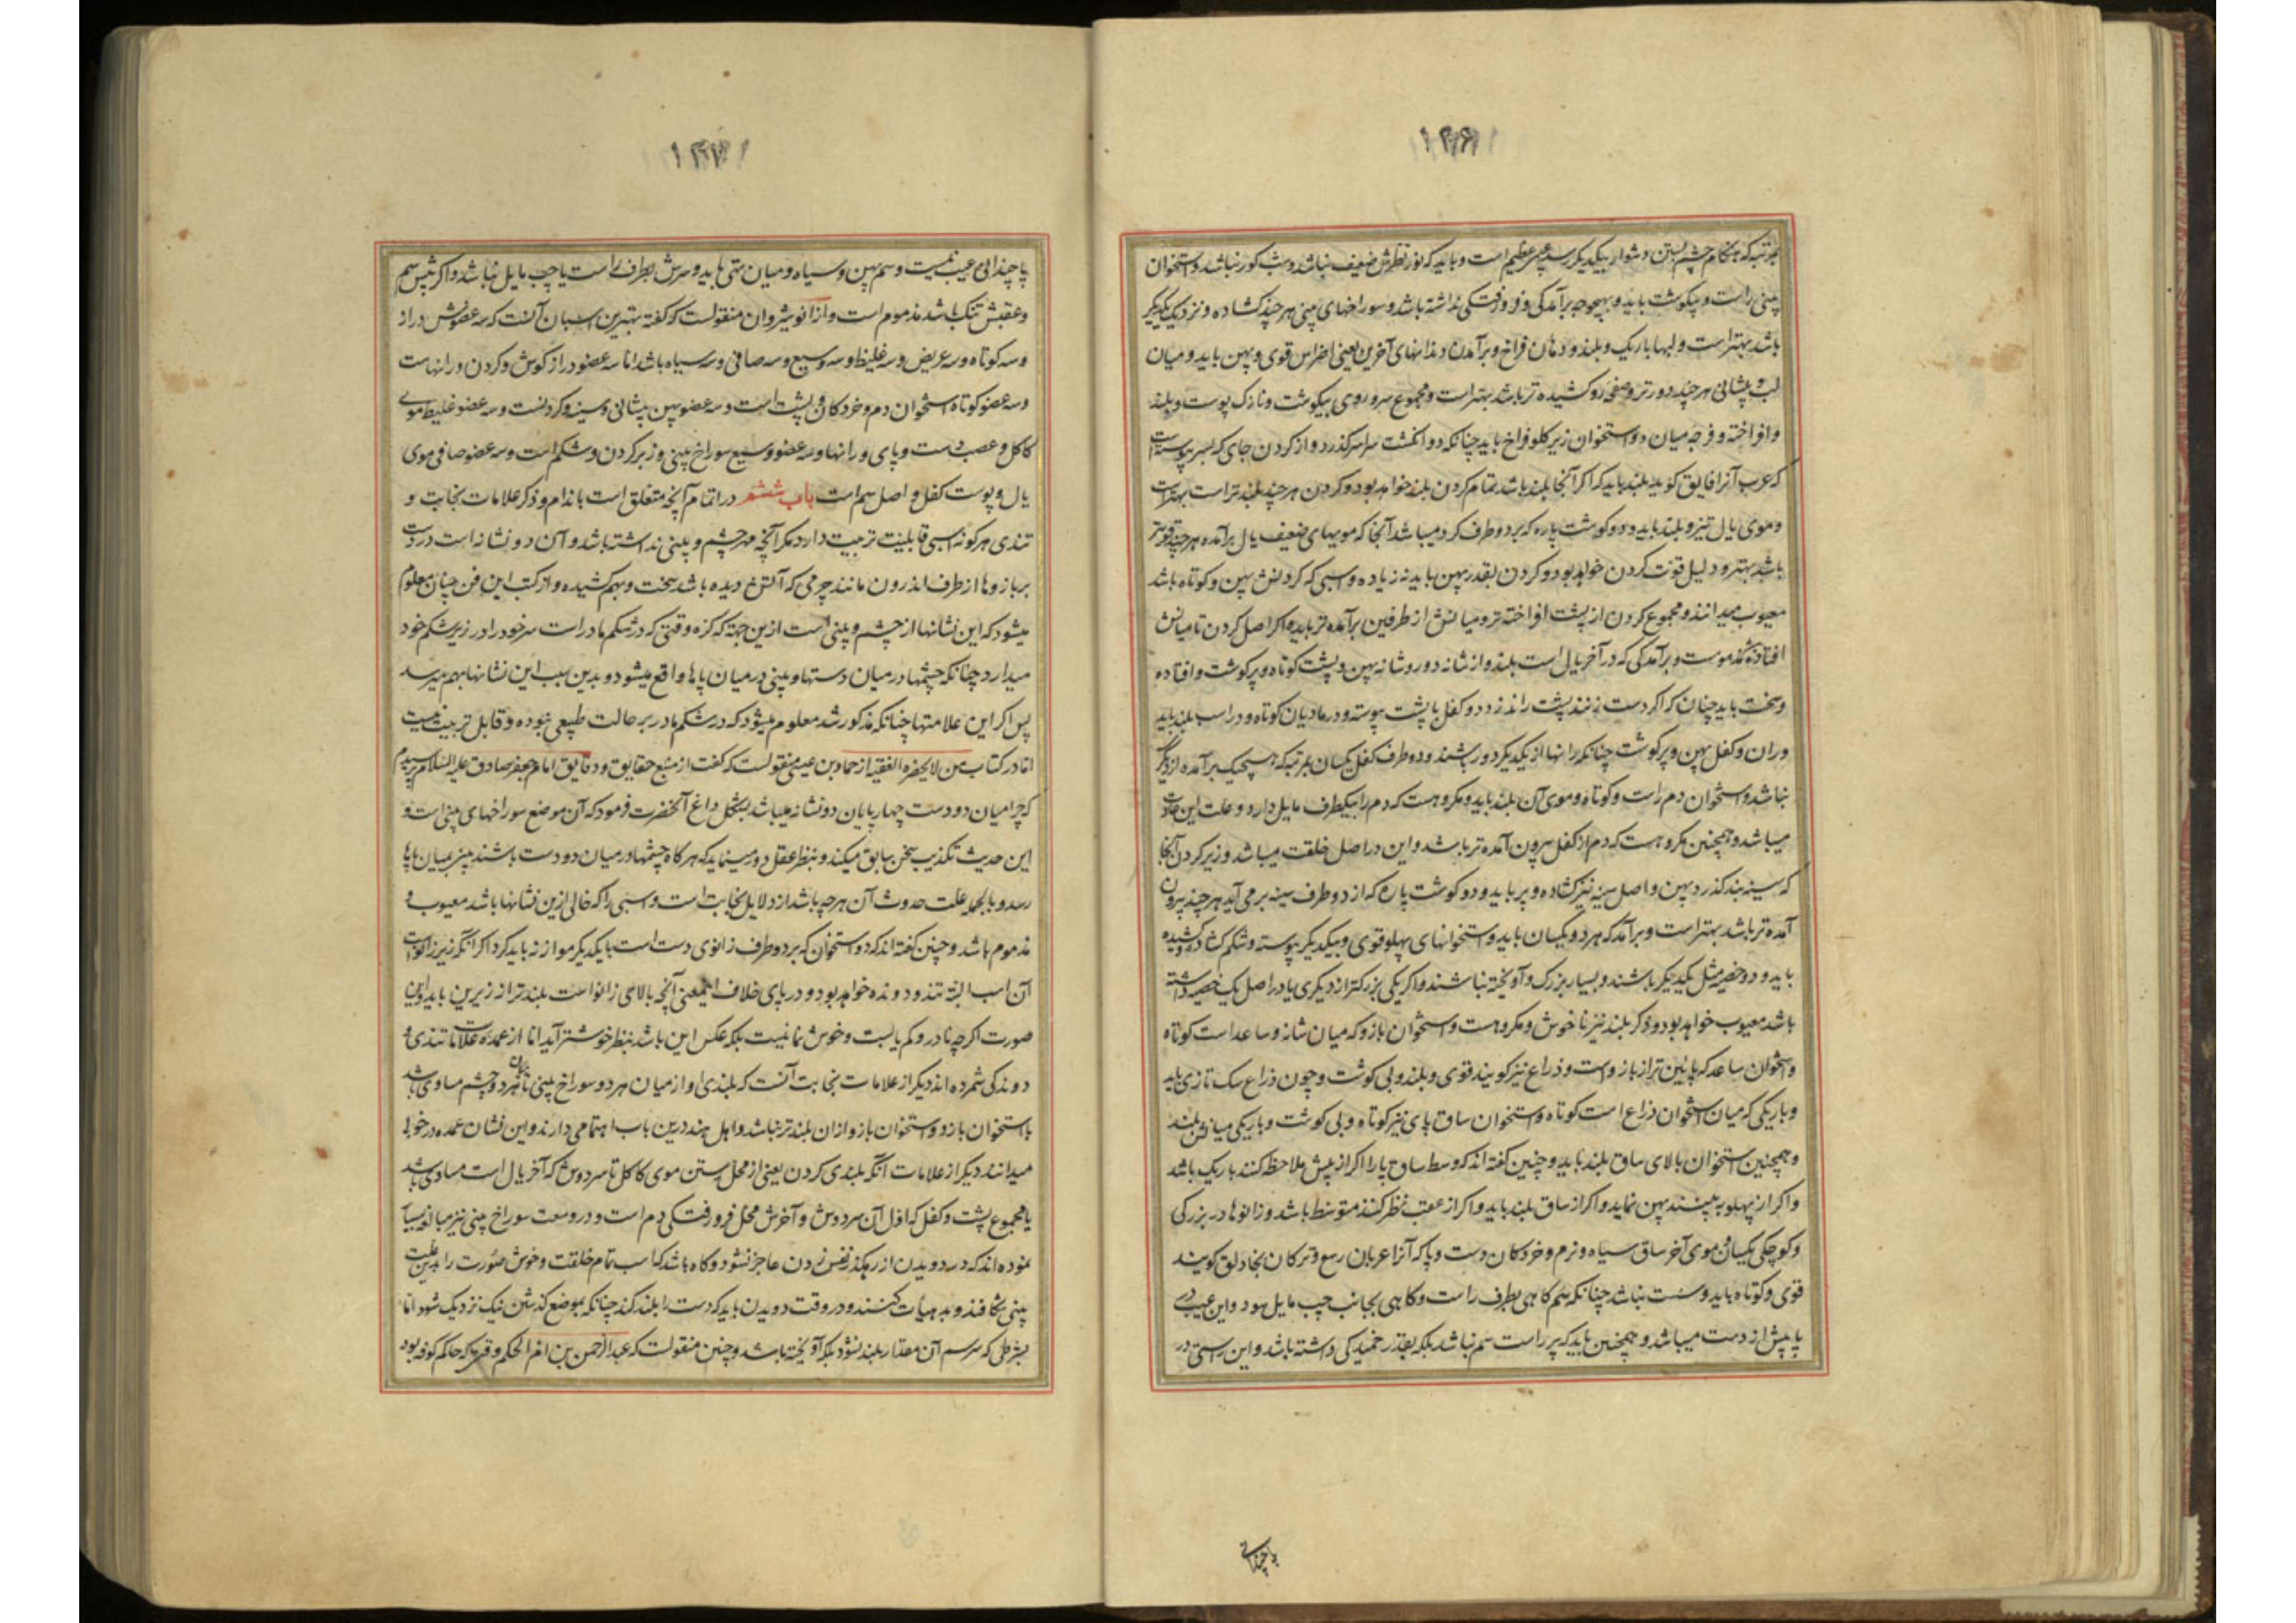 بمرتبه که هنگام چشم بستن دشوار بیکدیکر رسد عیبی عظیم است و باید که نور نظرش ضعیف نباشد و شب کور نباشد و استخوان
بینی راست و بیکوشت باید و بهیچوجه برآمدکی و فرو رفتکی نداشته باشد و سوراخهای بینی هر چند کشاده و نزدیک بیکدیکر
باشد بهتر است و لبها باریک و بلند و دهان فراخ و برآمدن دندانهای آخرین یعنی اضراس قوی و پهن باید و میان
لب و پیشانی هر چند دورتر و صفحۀ رو کشیده تر باشد بهتر است و مجموع سر و روی بیکوشت و نازک پوست و بلند
و افراخته و فرجه میان دو استخوان زیر کلو فراخ باید چنانکه دو انکشت سراسر کذرد و از کردن جای که بسر پیوسته است
که عرب آنرا فایق کویند بلند باید که اکر آنجا بلند باشد تمام کردن بلند خواهد بود و کردن هر چند بلندتر است بهتر است
و موی یال تیز و بلند باید و دو کوشت پاره که بر دو طرف کرد میباشد آنجا که مویهای ضعیف یال برآمده هر چند قویتر
باشد بهتر و دلیل قوت کردن خواهد بود و کردن بقدر پهن باید نه زیاده و اسبی که کردنش پهن و کوتاه باشد
معیوب میدانند و مجموع کردن از پشت افراخته تر و میانش از طرفین برآمده تر باید و اکر اصل کردن تا میانش
افتاده مذموست و برآمدکی که در آخر یال است بلند و از شانه دور و شانه پهن و پشت کوتاه و پر کوشت و افتاده
و سخت باید چنان که اکر دست زنند پشت را ندزدد و کفل با پشت پیوسته و در مادیان کوتاه و در اسب بلند باید
و ران و کفل پهن و پر کوشت چنانکه رانها از یکدیکر دور باشند و دو طرف کفل یکسان بمرتبه که هیچیک برآمده از دیکر
نباشد و استخوان دم راست و کوتاه و موی آن بلند باید و مکروهست که دم را بیکطرف مایل دارد و علت این عادت
میباشد و همچنین مکروهست که دم از کفل بیرون آمده تر باشد و این در اصل خلقت میباشد و زیر کردن آنجا
که سینه بند کذرد پهن و اصل سینه نیز کشاده و پر باید و دو کوشت پاره که از دو طرف سینه بر می آید هر چند بیرون
آمده تر باشد بهتر است و برآمد که هر دو یکسان باید و استخوانهای پهلو قوی و بیکدیکر پیوسته و شکم کشاده و کشیده
باید و دو خصیه مثل یکدیکر باشند و بسیار بزرک و آویخته نباشند و اکر یکی بزرکتر از دیکری یا در اصل یک خصیه داشته
باشد معیوب خواهد بود و ذکر بلند نیز ناخوش و مکروهست و استخوان بازو که میان شانه و ساعد است کوتاه
و استخوان ساعد که پائین تر از بازوست و ذراع نیز کویند قوی و بلند و بی کوشت و چون ذراع سک تازی باید
و باریکی که میان استخوان ذراع است کوتاه و استخوان ساق پای نیز کوتاه و بی کوشت و باریکی میانش بلند
و همچنین استخوان بالای ساق بلند باید و چنین کفته اند که وسط ساق پا را اکر از پیش ملاحظه کنند باریک باشد
و اکر از پهلو به بینند پهن نماید و اکر از ساق بلند باید و اکر از عقب نظر کنند متوسط باشد و زانوها در بزرکی
و کوچکی یکسان و موی آخر ساق سیاه و نرم و خردکان دست و پا که آنرا عربان رسغ و ترکان بخادلق کویند
قوی و کوتاه باید و سست نباشد چنانکه سم کاهی بطرف راست و کاهی بجانب چپ مایل بود و این عیب در
پا بیش از دست میباشد و همچنین باید که پر راست سم نباشد بلکه بقدر خمیدکی داشته باشد و این راستی در
پا چندانی
پا چندانی عیب نیست و سم پهن و سیاه و میان تهی باید و سرش بطرف راست یا چپ مایل نباشد و اکر پیش سم
و عقبش تنک باشد مذموم است و از انوشیروان منقولست که کفته بهترین اسبان آنست که سه عضوش دراز
و سه کوتاه و سه عریض و سه غلیظ و سه وسیع و سه صافی و سه سیاه باشد اما سه عضو دراز کوش و کردن و رانهاست
و سه عضو کوتاه استخوان دم و خردکان و پشت است و سه عضو پهن پیشانی و سینه و کردنست و سه عضو غلیظ موی
کاکل و عصب دست و پای و رانها و سه عضو وسیع سوراخ بینی و زیر کردن و شکم است و سه عضو صافی موی
یال و پوست کفل و اصل سم است باب ششم در اتمام آنچه متعلق است باندام و ذکر علامات نجابت و
تندی هر کونه اسبی قابلیت تربیت دارد مکر آنچه مهر چشم و بینی نداشته باشد و آن دو نشانه است در دست
بر بازوها از طرف اندرون مانند چرمی که آتش دیده باشد سخت و بهم کشیده و از کتب این فن چنان معلوم
میشود که این نشانها از چشم و بینی است ازین جهته که کره وقتی که در شکم مادر است سر خود را در زیر شکم خود
میدارد چنانکه چشمها در میان دستها و بینی در میان پاها واقع میشود و بدین سبب این نشانها بهم میرسد
پس اکر این علامتها چنانکه مذکور شد معلوم میشود که در شکم مادر بر حالت طبیعی نبوده و قابل تربیت نیست
اما در کتاب من لایحضره الفقیه از حماد بن عیسی منقولست که کفت از منبع حقایق و دقایق امام جعفر صادق علیه السلام پرسیدم
که چرا میان دو دست چهارپایان دو نشانه میباشد بشکل داغ آنحضرت فرمود که آن موضع سوراخهای بینی است و
این حدیث تکذیب سخن سابق میکند و بنظر عقل دور مینماید که هر کاه چشمها در میان دو دست باشند بینی بمیان پاها
رسد و بالجمله علت حدوث آن هر چه باشد از دلایل نجابت است و اسبی را که خالی ازین نشانها باشد معیوب و
مذموم باشد و چنین کفته اند که دو استخوان که بر دو طرف زانوی دست است با یکدیکر موازنه باید کرد اکر آنکه زیر زانو است
آن اسب البته تند و دونده خواهد بود و در پای خلاف این یعنی آنچه بالای زانواست بلندتر از زیرین باید و این
صورت اکرچه نادر و کم یابست و خوش نما نیست بلکه عکس این باشد بنظر خوشتر آید اما از عمده علامات تندی و
دوندکی شمرده اند دیکر از علامات نجابت آنست که بلندی او از میان هر دو سوراخ بینی تا میان هر دو چشم مساوی باشد
با استخوان بازو و استخوان بازو از ان بلندتر نباشد و اهل هند درین باب اهتمامی دارند و این نشان عمده در خوبی
میدانند دیکر از علامات آنکه بلندی کردن یعنی از محل رستن موی کاکل تا سر دوش که آخر یال است مساوی باشد
با مجموع پشت و کفل که اول آن سر دوش و آخرش محل فرو رفتکی دم است و در وسعت سوراخ بینی نیز مبالغه بسیار
نموده اند که در دویدن از رهکذر نفس زدن عاجز نشود و کاه باشد که اسب تمام خلقت و خوش صورت را بدین علت
بینی شکافند و بد هیات کنند و در وقت دویدن باید که دست را بلند کند چنانکه بموضع کذشتن تنک نزدیک شود اما
بشرطی که سر سم آن مقدار بلند نشود بلکه آویخته باشد و چنین منقولست که عبدالرحمن بن ام الحکم وقتی که حاکم کوفه بود